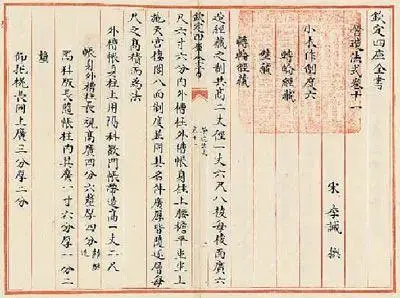 欽定四庫全書
營造法式卷十一
宋 李誡 撰
小木作制度六
轉輪經藏
壁藏
轉輪經藏
造經藏之制共高二丈徑一丈六尺八棱每棱面廣六
欽定四庫全書
營造法式
卷十一
尺六寸六分內外槽柱外槽帳身柱上腰檐平坐坐上
施天宮樓閣八面制度並同其名件廣厚皆隨逐層每
尺之高積而為法
外槽帳身柱上用隔科歡門帳帶造高一丈二尺
帳身外槽柱長視高廣四分六釐厚四分歸瓣造
隔科版長隨帳柱內其廣一寸六分厚一分二
釐
仰托榥長同上廣三分厚二分